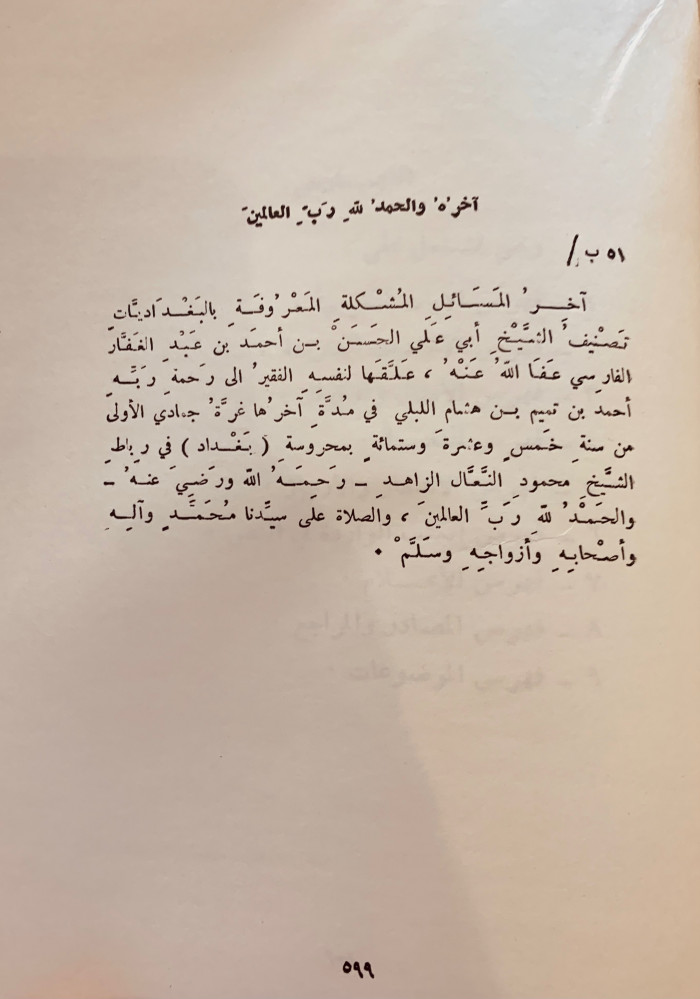 آخرُهُ والحمدُ للهِ رَبِّ العالمينَ
٥١ ب /
آخرُ المَسَائِلِ المُشْكلةِ المَعْرُوفَةِ بالبَغْدَاديَّاتِ
تَصْنيفُ الشَّيْخِ أبي عَلي الحَسَنْ بن أحمَد بن عَبْدِ الغَفَّار
الفارسي عَفَا اللهُ عَنْهُ ، عَلَّقَها لنفسهِ الفقيرُ الى رَحمةِ رَبِّهِ
أحمد بن تميم بن هشام اللبلي في مُدَّةٍ آخرُها غرَّةُ جمادي الأولى
من سنةِ خَمسٍ وعشرةَ وستمائةٍ بمحروسةِ ( بَغْداد ) في رباطِ
الشَّيْخِ محمود النَّعَّال الزاهدِ ــ رحَمِهَُ اللهُ ورَضيَ عنهُ ــ
والحَمْدُ للهِ رَبِّ العالمينَ ، والصلاة على سيِّدنا مُحَمَّدٍ وآلِهِ
وأصْحابِهِ وأزواجِهِ وسَلَّمْ ٠
٥٩٩